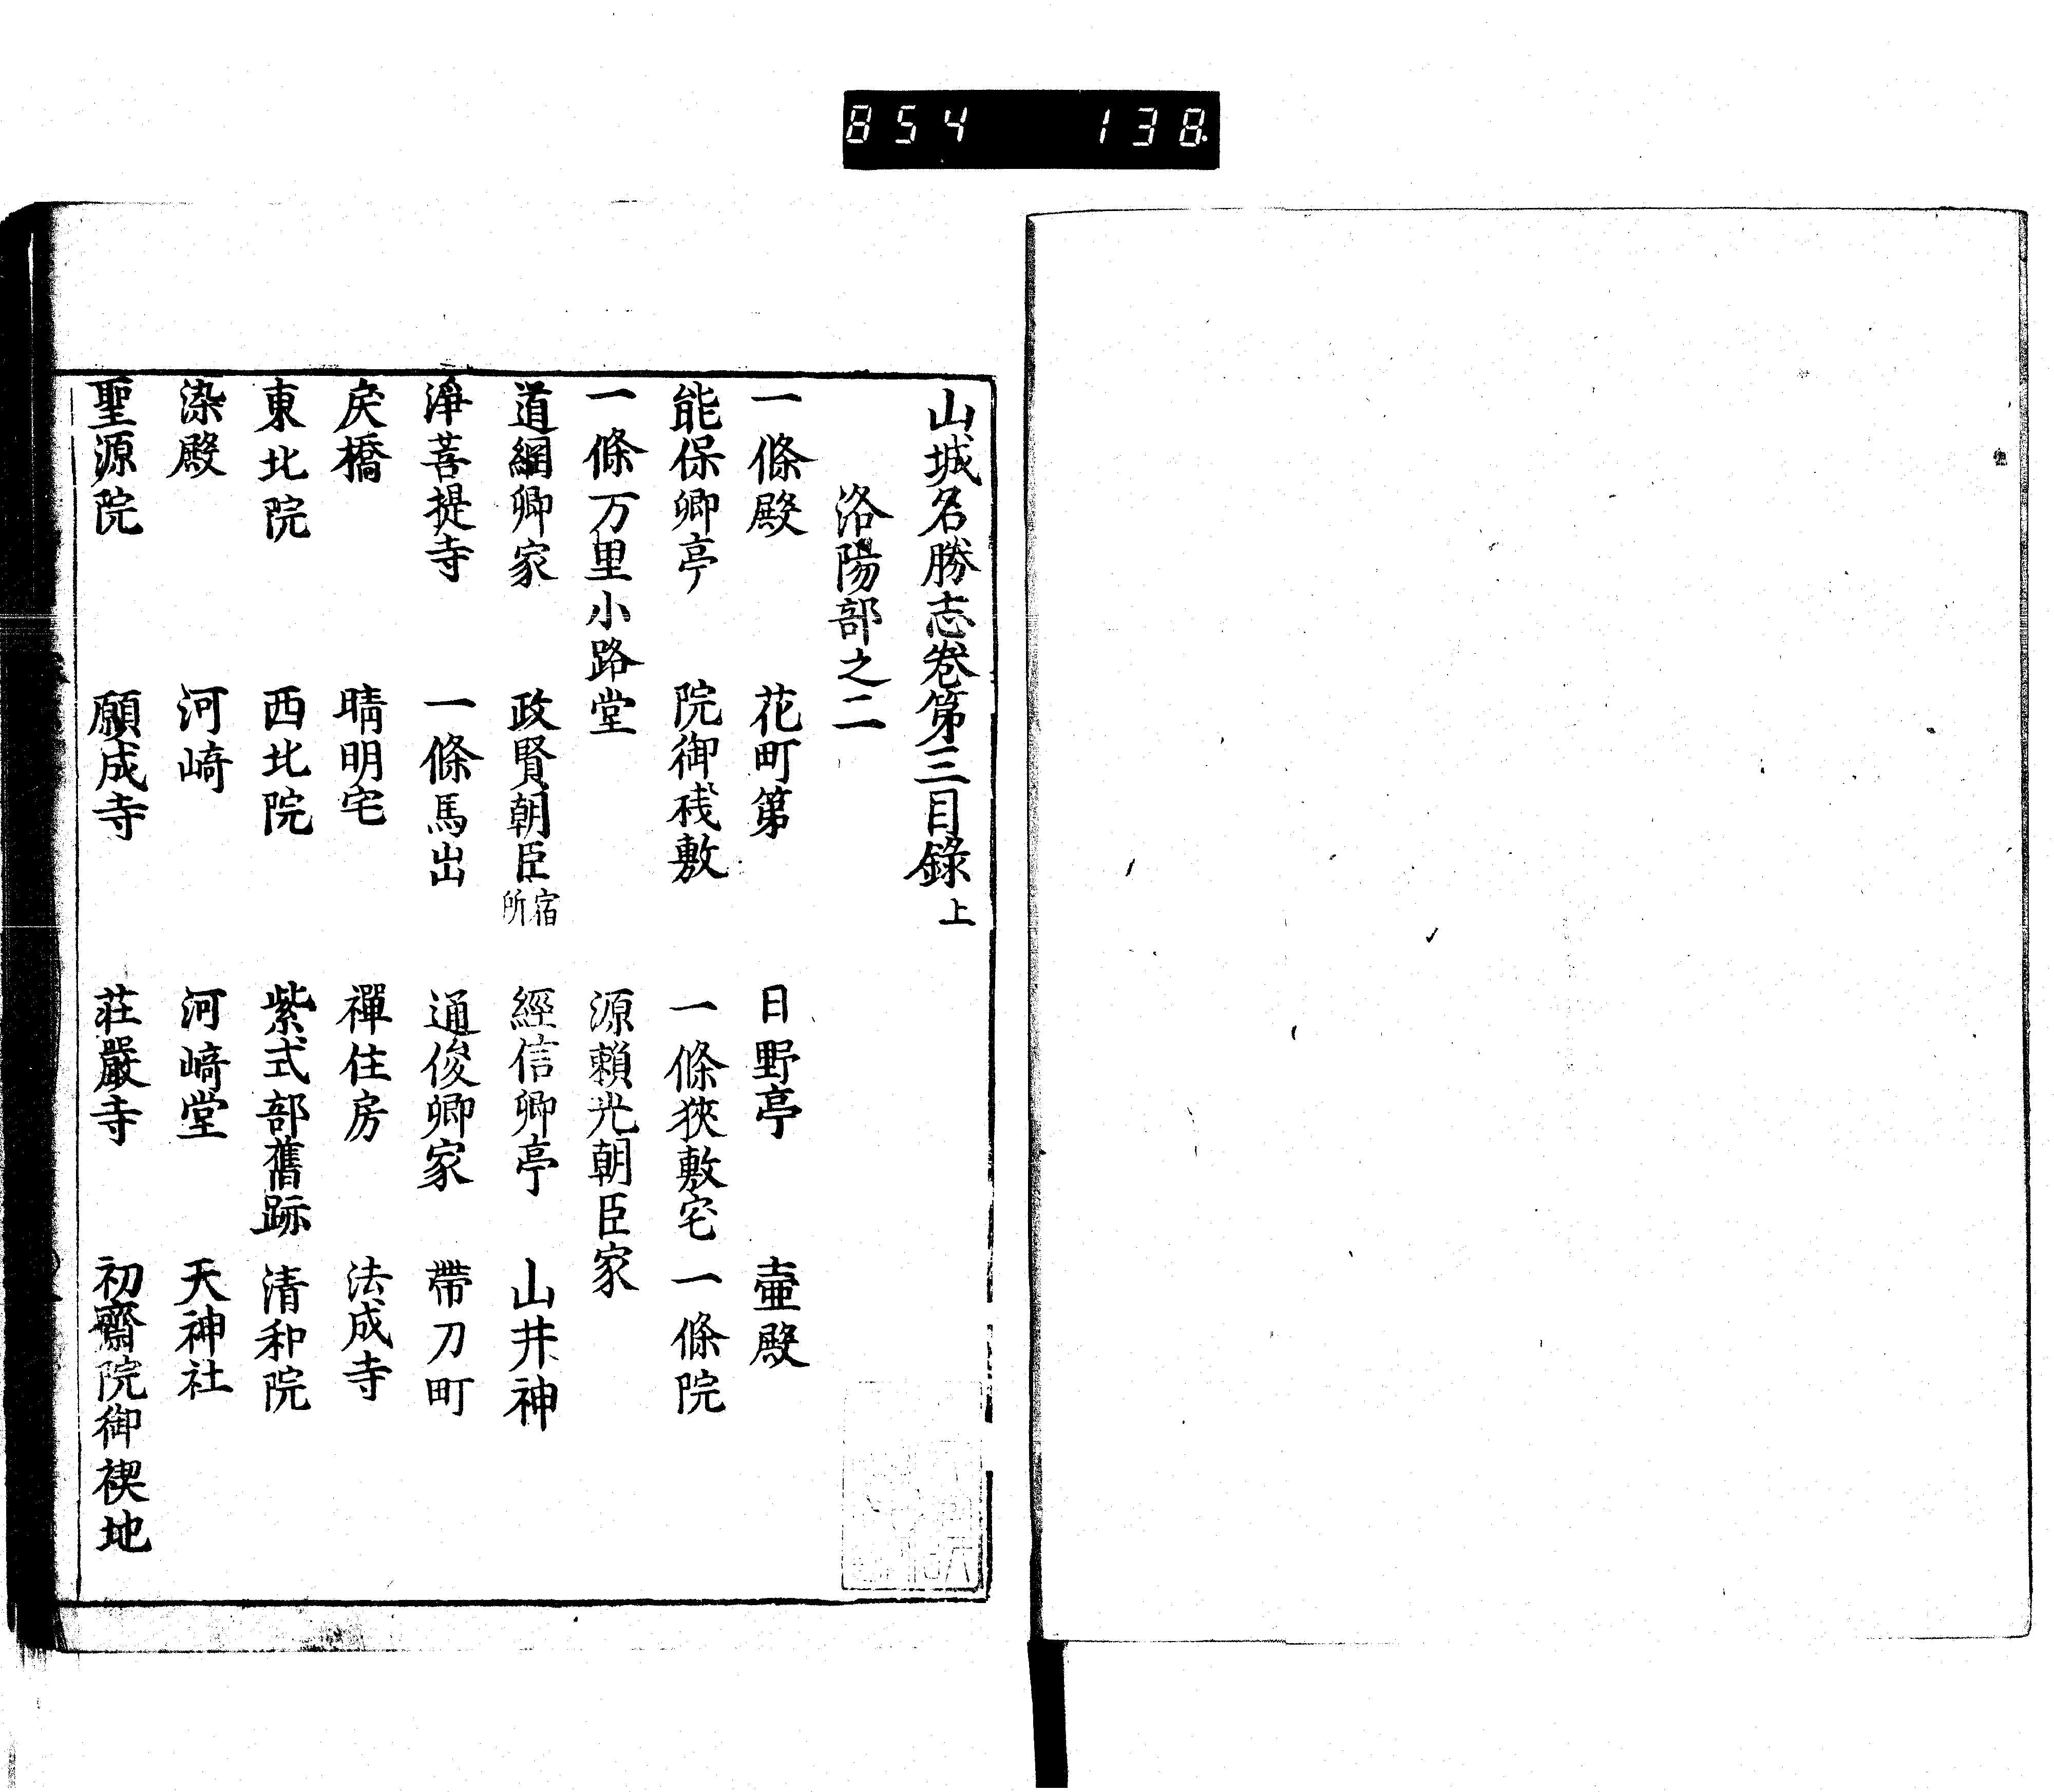 854 138
山城名勝志卷第三目錄上
洛陽部之二
一條殿 花町第 日野亭 壷殿
能保卿亭 院御棧敷 一條狹敷宅 一條院
一條万里小路堂 源賴光朝臣家
道綱卿家 政賢朝臣宿所 經信卿亭 山井神
淨菩提寺 一條馬出 通俊卿家 帶刀町
戾橋 晴明宅 禪住房 法成寺
東北院 西北院 紫式部舊跡 清和院
染殿 河﨑 河﨑堂 天神社
聖源院 願成寺 莊嚴寺 初齋院御禊地